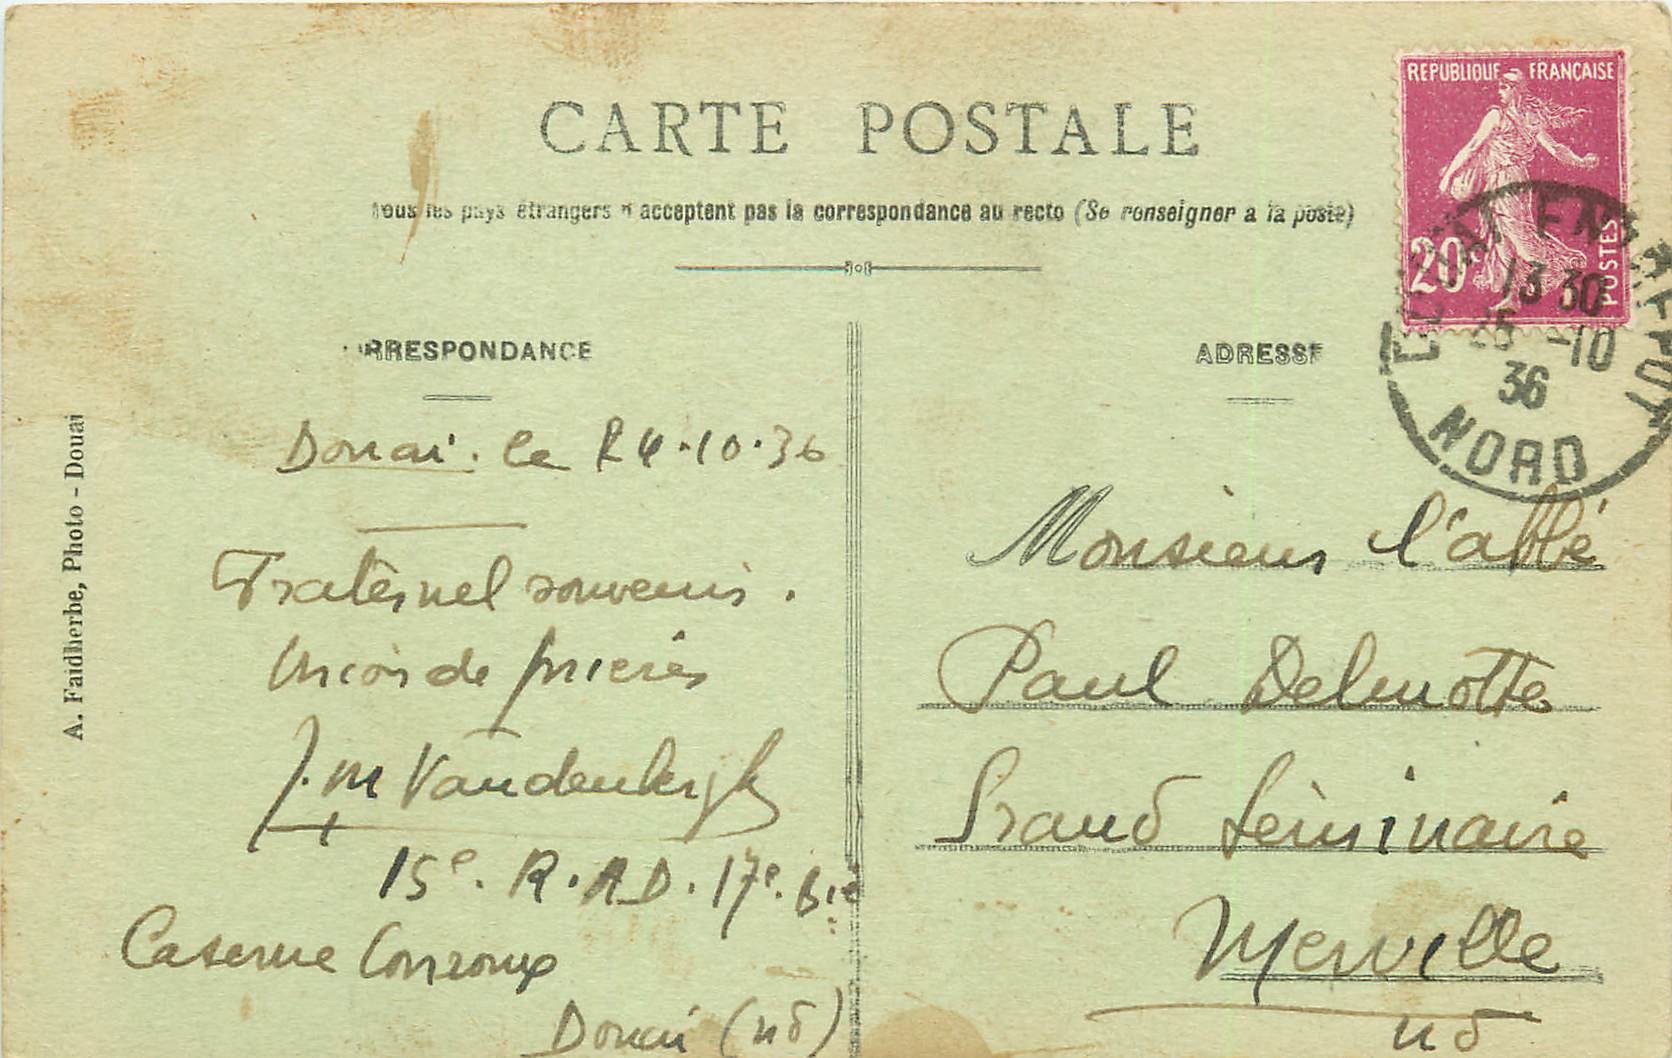 CARTE POSTALE
Tous les pays étrangers n'acceptent pas la correspondance au recto (Se renseigner a la poste)
RRESPONDANCE
ADRESSE
REPUBLIQUE FRANÇAISE
20c
POSTES
13 30
25 -10
36
NORD
A. Faidherbe, Photo - Douai
Douai. le 24.10.36
Fraternel souvenir.
Union de prières
J.M Vandenbergh
15e. R.A.D. 17e. Bie
Caserne Conroux
Douai (nd)
Monsieur l'abbé
Paul Delmotte
Grand Séminaire
Merville
nd